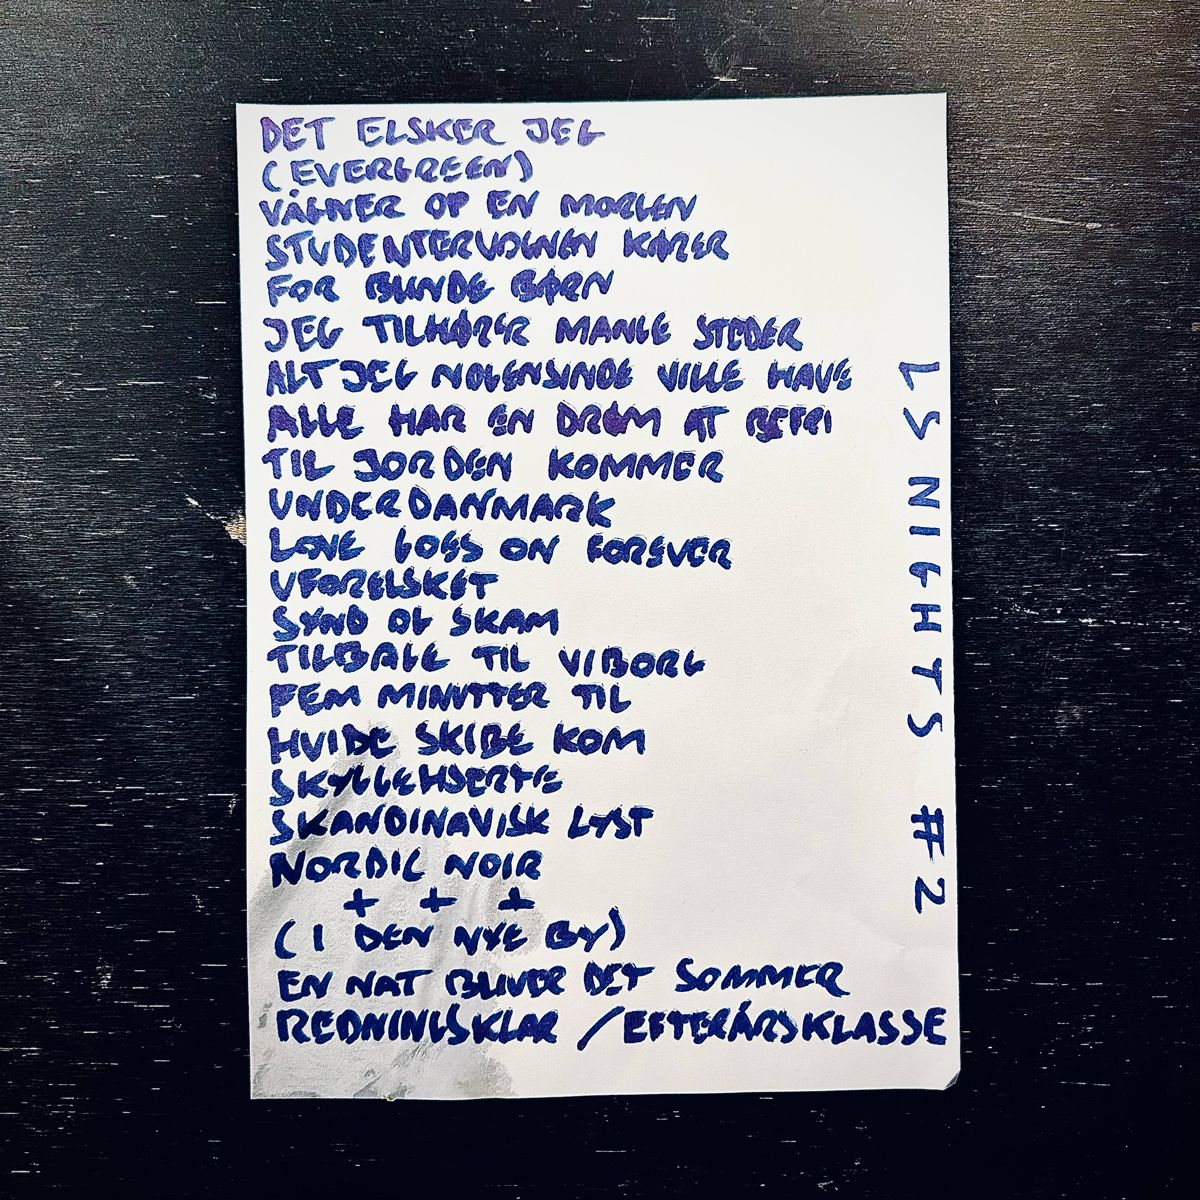 DET ELSKER JEG
(EVERGREEN)
VÅGNER OP EN MORGEN
STUDENTERVOGNEN KØRER
FOR BUNDE BØRN
JEG TILHØRER MANGE STEDER
ALT JEG NOGENSINDE VILLE HAVE
ALLE HAR EN DRØM AT BEFRI
TIL JORDEN KOMMER
UNDERDANMARK
LOVE GOES ON FOREVER
UFORELSKET
SYND OG SKAM
TILBAGE TIL VIBORG
FEM MINUTTER TIL
HVIDE SKIBE KOM
SKYGGEHJERTE
SKANDINAVISK LYST
NORDIC NOIR
+ + +
(I DEN NYE BY)
EN NAT BLIVER DET SOMMER
REDNINGSKLAR / EFTERÅRSKLASSE
LS NIGHTS #2